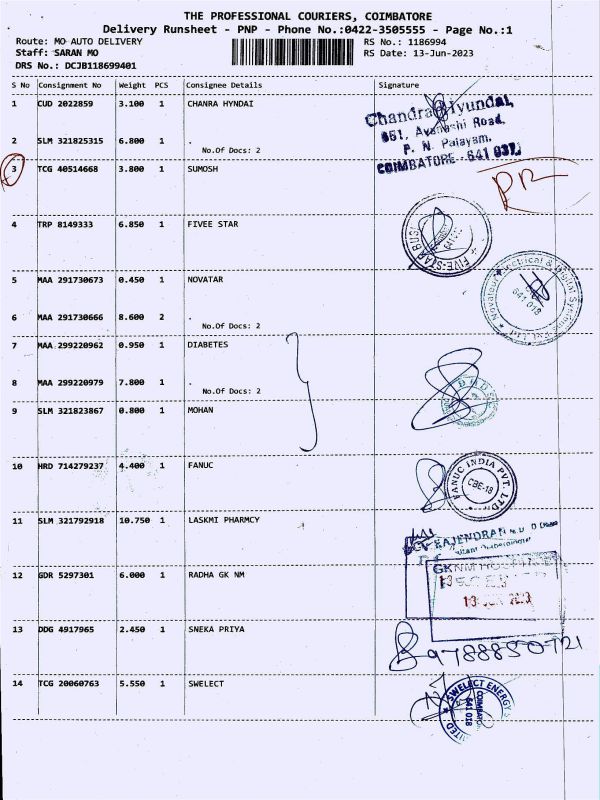 THE PROFESSIONAL COURIERS, COIMBATORE
Delivery Runsheet - PNP - Phone No.:0422-3505555 - Page No.:1
Route: MO AUTO DELIVERY
RS No.: 1186994
Staff: SARAN MO
RS Date: 13-Jun-2023
DRS No.: DCJB118699401
S No Consignment No Weight PCS Consignee Details Signature
1 CUD 2022859 3.100 1 CHANRA HYNDAI
Chandra Hyundai,
651, Avanashi Road,
2 SLM 321825315 6.800 1 .
P. N. Palayam,
No.Of Docs: 2
COIMBATORE - 641 037
3 TCG 40514668 3.800 1 SUMOSH
4 TRP 8149333 6.850 1 FIVEE STAR
FIVE-STAR
5 MAA 291730673 0.450 1 NOVATAR
641 018
6 MAA 291730666 8.600 2 .
No.Of Docs: 2
7 MAA 299220962 0.950 1 DIABETES
8 MAA 299220979 7.800 1 .
No.Of Docs: 2
9 SLM 321823867 0.800 1 MOHAN
10 HRD 714279237 4.400 1 FANUC
FANUC INDIA PVT. LTD
CBE-18
11 SLM 321792918 10.750 1 LASKMI PHARMCY
RAJENDRAN
12 GDR 5297301 6.000 1 RADHA GK NM
GKNM
13 JUN 2023
13 DDG 4917965 2.450 1 SNEKA PRIYA
14 TCG 20060763 5.550 1 SWELECT
SWELECT ENERGY
COIMBATORE
641 018